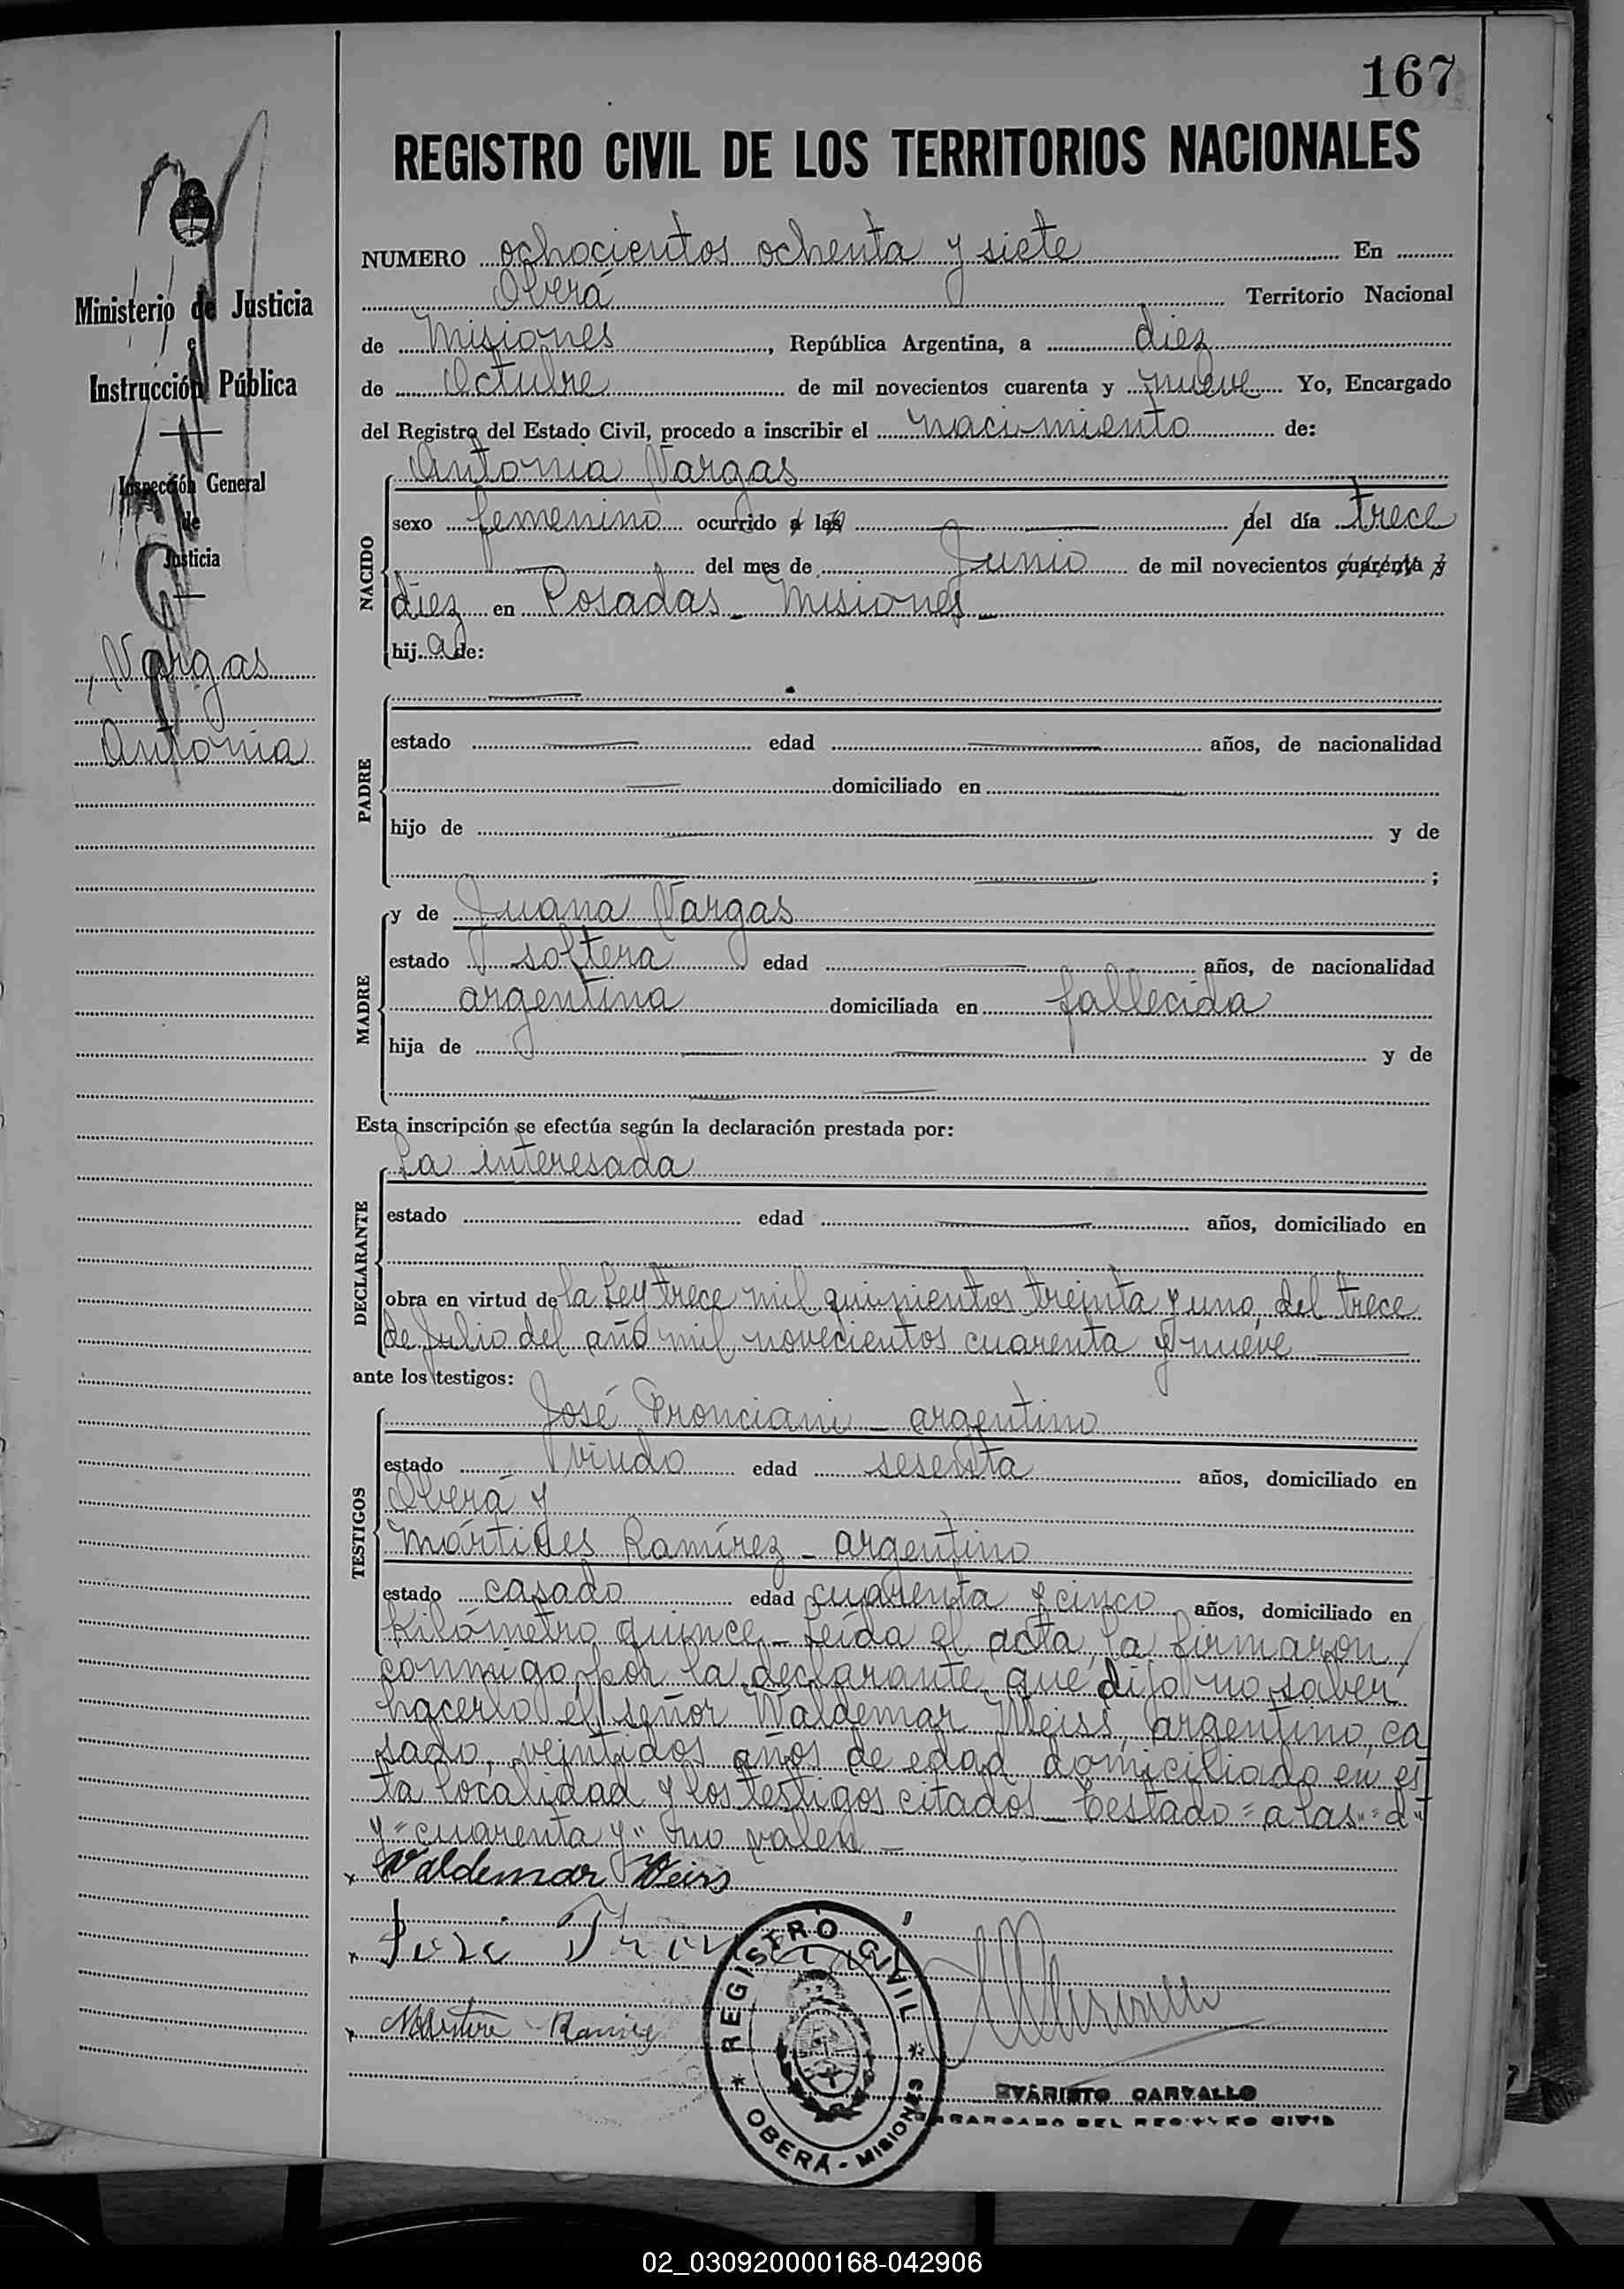 167
REGISTRO CIVIL DE LOS TERRITORIOS NACIONALES
Ministerio de Justicia
e
Instrucción Pública
Inspección General
de
Justicia
Vargas
Antonia
NUMERO ochocientos ochenta y siete En
Oberá Territorio Nacional
de Misiones, República Argentina, a diez
de Octubre de mil novecientos cuarenta y nueve Yo, Encargado
del Registro del Estado Civil, procedo a inscribir el nacimiento de:
NACIDO
Antonia Vargas
sexo femenino ocurrido a las del día trece
del mes de Junio de mil novecientos cuarenta y
diez en Posadas - Misiones -
hij a de:
PADRE
estado edad años, de nacionalidad
domiciliado en
hijo de y de
;
MADRE
y de Juana Vargas
estado soltera edad años, de nacionalidad
argentina domiciliada en fallecida
hija de y de
Esta inscripción se efectúa según la declaración prestada por:
DECLARANTE
La interesada
estado edad años, domiciliado en
obra en virtud de la Ley trece mil quinientos treinta y uno, del trece
de Julio del año mil novecientos cuarenta y nueve
ante los testigos:
TESTIGOS
José Fronciani - argentino
estado viudo edad sesenta años, domiciliado en
Oberá y
Ramírez - argentino
estado casado edad cuarenta y cinco años, domiciliado en
Kilómetro quince - Leída el acta, la firmaron
conmigo, por la declarante que dijo no saber
hacerlo el señor Waldemar Weiss, argentino, ca
sado, veintidos años de edad domiciliado en es
ta localidad y los testigos citados - Testado = a las " = d "
y = cuarenta y " no valen -
Valdemar Weiss
REGISTRO CIVIL
* OBERÁ - MISIONES *
EVARISTO CARVALLO
ENCARGADO DEL REGISTRO CIVIL
02_030920000168-042906